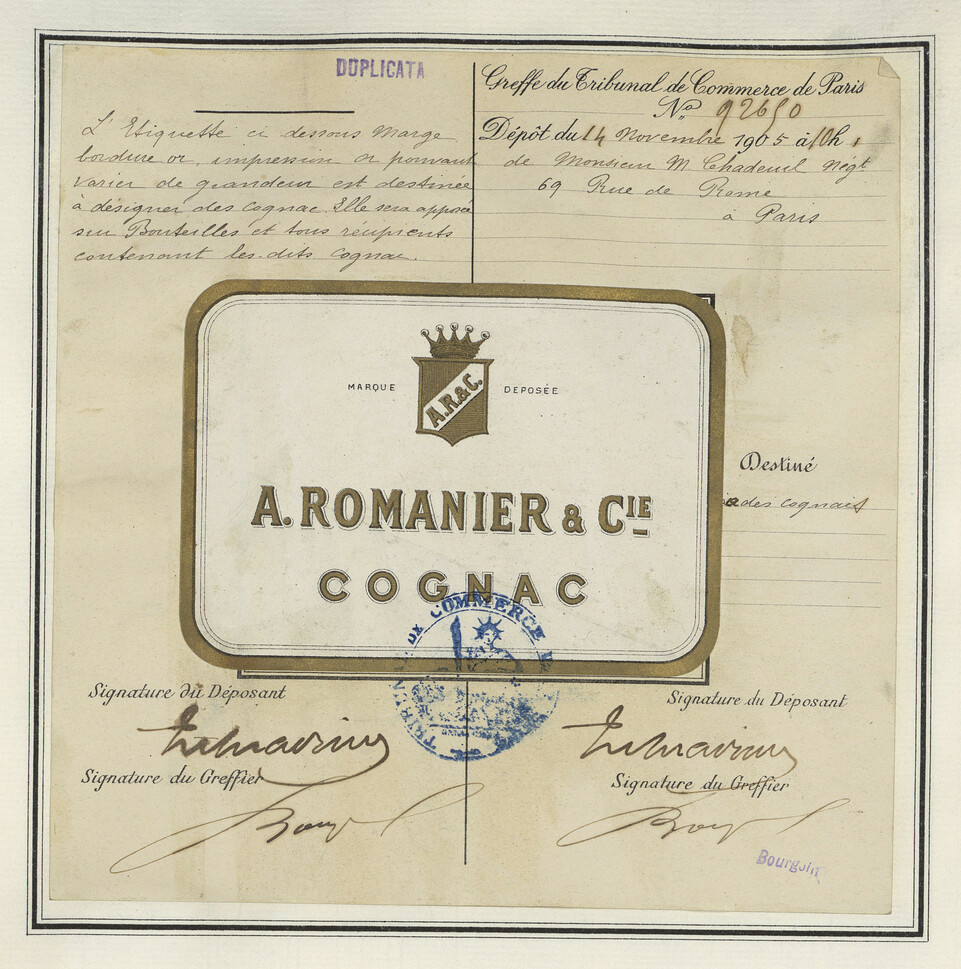 DUPLICATA
L'Etiquette ci dessous marge
bordure or, impression or pouvant
varier de grandeur est destinée
à désigner des cognac. Elle sera apposée
sur Bouteilles et tous recipients
contenant les dits cognac.
Greffe du Tribunal de Commerce de Paris
No. 92650
Dépôt du 14 Novembre 1905 à 10h,
de Monsieur M. Chadeuil Négt
69 Rue de Rome
à Paris
MARQUE DEPOSÉE
A.R.&C.
A. ROMANIER & CIE
COGNAC
Destiné
des cognacs
DE COMMERCE
Signature du Déposant
Signature du Greffier
Signature du Déposant
Signature du Greffier
Bourgoin